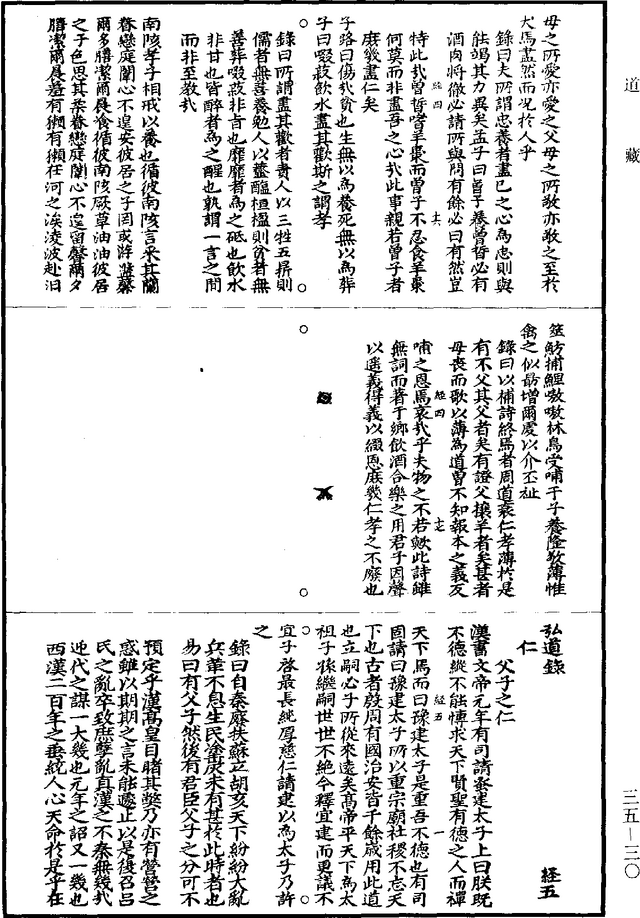 道藏
母之所愛亦愛之父母之所敬亦敬之至於
犬馬盡然而況於人乎
錄曰夫所謂忠養者盡己之心為忠則與
能竭其力異矣孟子曰曾子養曾晳必有
酒肉將徹必請所與問有餘必曰有然豈
特此哉曾晳嗜羊棗而曾子不忍食羊棗
何莫而非盡吾之心哉此事親若曾子者
庶幾盡仁矣
子路曰傷哉貧也生無以為養死無以為葬
子曰啜菽飲水盡其歡斯之謂孝
錄曰所謂盡其歡者貴人以三牲五鼎則
儒者無善養勉人以虀醢桓楹則貧者無
善葬啜菽非旨也靡靡者為之砥也飲水
非甘也皆醉者為之醒也孰謂一言之間
而非至教哉
南陔孝子相戒以養也循彼南陔言采其蘭
眷戀庭闈心不遑安彼居之子罔或游盤馨
爾夕膳潔爾晨餐循彼南陔厥草油油彼居
之子色思其柔眷戀庭闈心不遑留馨爾夕
膳潔爾晨羞有獺有獺在河之涘淩波赴汨
經四
十六
筮魴捕鯉嗷嗷林烏受哺于子養隆敬薄惟
禽之似勗增爾虔以介丕祉
錄曰以補詩終焉者周道衰仁孝薄於是
有不父其父者矣有證父攘羊者矣甚者
母喪而歌以薄為道曾不知報本之義反
哺之恩焉哀哉乎夫物之不若歟此詩雖
無詞而著于鄉飲酒合樂之用君子因聲
以遥義得義以綴恩庶幾仁孝之不廢也
經四
十七
弘道錄
仁
父子之仁
漢書文帝元年有司請蚤建太子上曰朕既
不德縱不能博求天下賢聖有德之人而禪
天下焉而曰豫建太子是重吾不德也有司
固請曰豫建太子所以重宗廟社稷不忘天
下也古者殷周有國治安皆千餘歲用此道
也立嗣必子所從來遠矣高帝平天下為太
祖子孫繼嗣世世不絕今釋宜建而更議不
宜子啓最長純厚慈仁請建以為太子乃許
之
錄曰自秦廢扶蘇立胡亥天下紛紛大亂
兵革不息生民塗炭未有甚於此時者也
易曰有父子然後有君臣父子之分可不
預定乎漢高皇目睹其獘乃亦有營營之
惑雖以期期之言未能遽止以是後召呂
氏之亂卒致庶孽亂真漢之不秦無幾哉
近代之謀一大幾也元年之詔又一幾也
西漢二百年之垂統人心天命於是乎在
經五
一
經五
三五—三〇